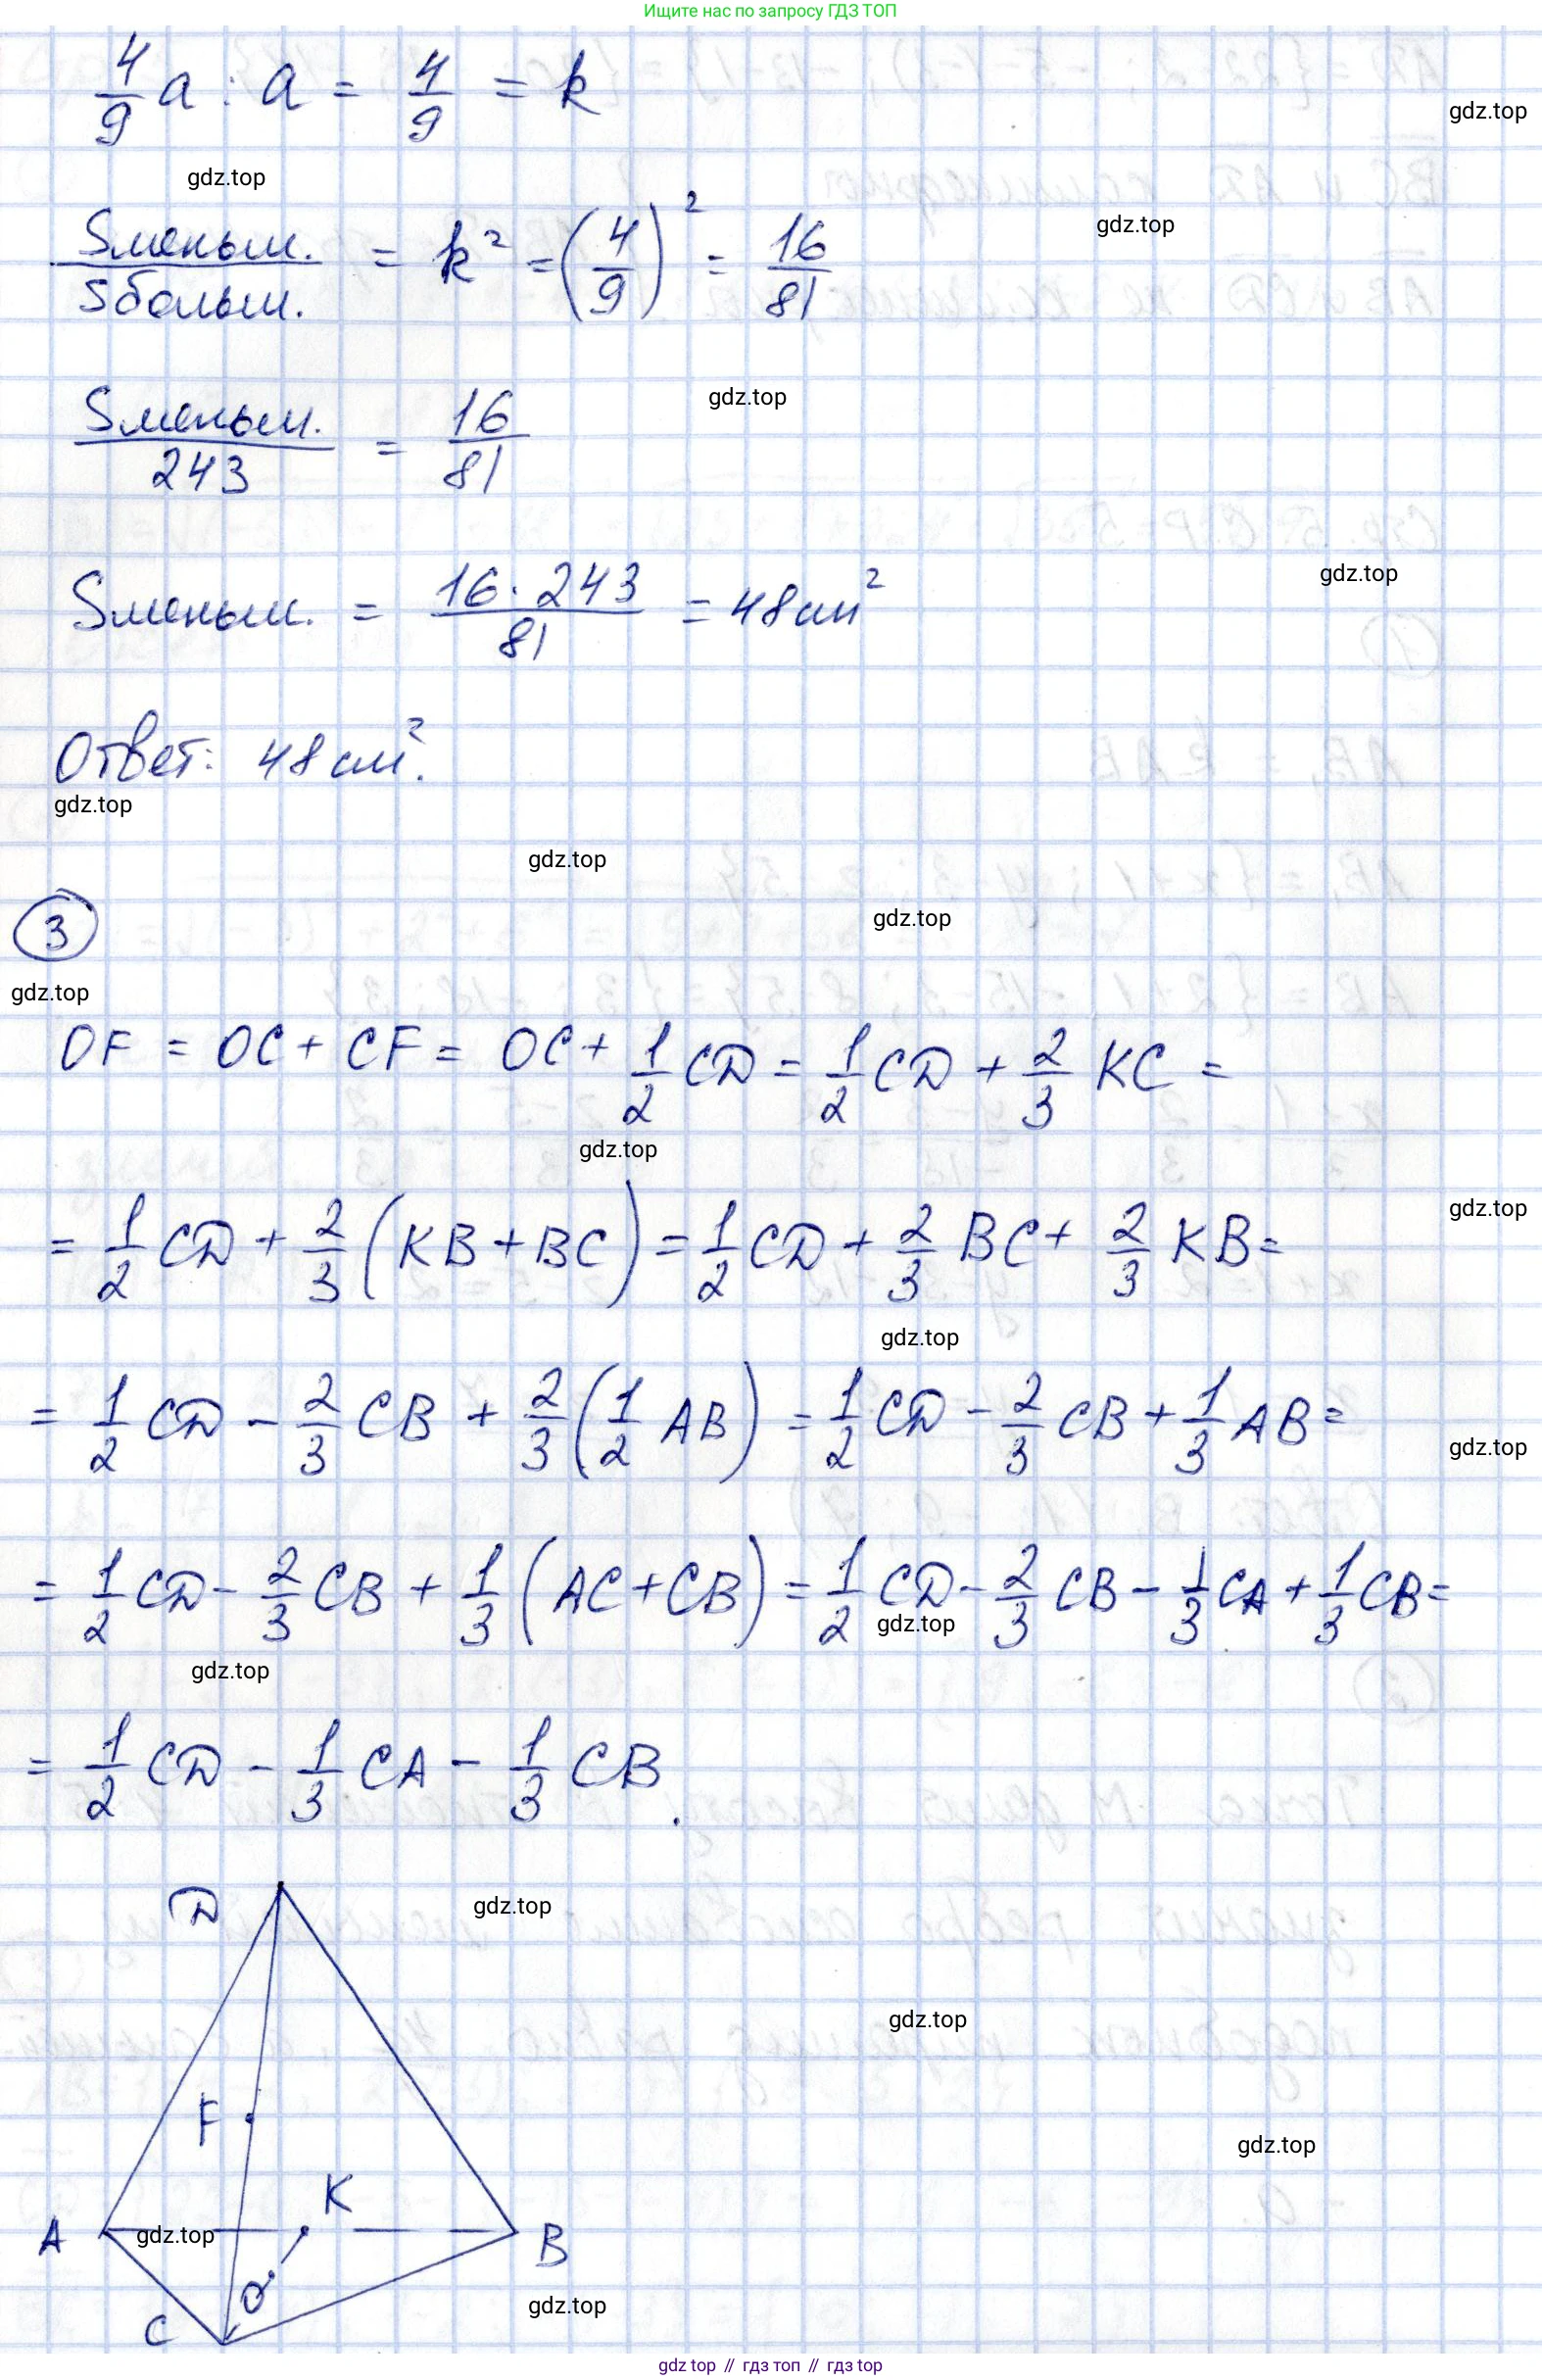 Ищите нас по запросу ГДЗ ТОП
4/9 a : a = 4/9 = k
gdz.top
gdz.top
Sменьш./Sбольш. = k² = (4/9)² = 16/81
gdz.top
Sменьш./243 = 16/81
gdz.top
gdz.top
Sменьш. = 16·243/81 = 48 см²
Ответ: 48 см².
gdz.top
gdz.top
3
gdz.top
gdz.top
OF = OC + CF = OC + 1/2 CD = 1/2 CD + 2/3 KC =
gdz.top
gdz.top
= 1/2 CD + 2/3 (KB + BC) = 1/2 CD + 2/3 BC + 2/3 KB =
gdz.top
= 1/2 CD - 2/3 CB + 2/3 (1/2 AB) = 1/2 CD - 2/3 CB + 1/3 AB =
gdz.top
= 1/2 CD - 2/3 CB + 1/3 (AC + CB) = 1/2 CD - 2/3 CB - 1/3 CA + 1/3 CB =
gdz.top
gdz.top
= 1/2 CD - 1/3 CA - 1/3 CB.
D
gdz.top
gdz.top
F
gdz.top
K
A
gdz.top
B
O
gdz.top
C
gdz top // гдз топ // gdz top